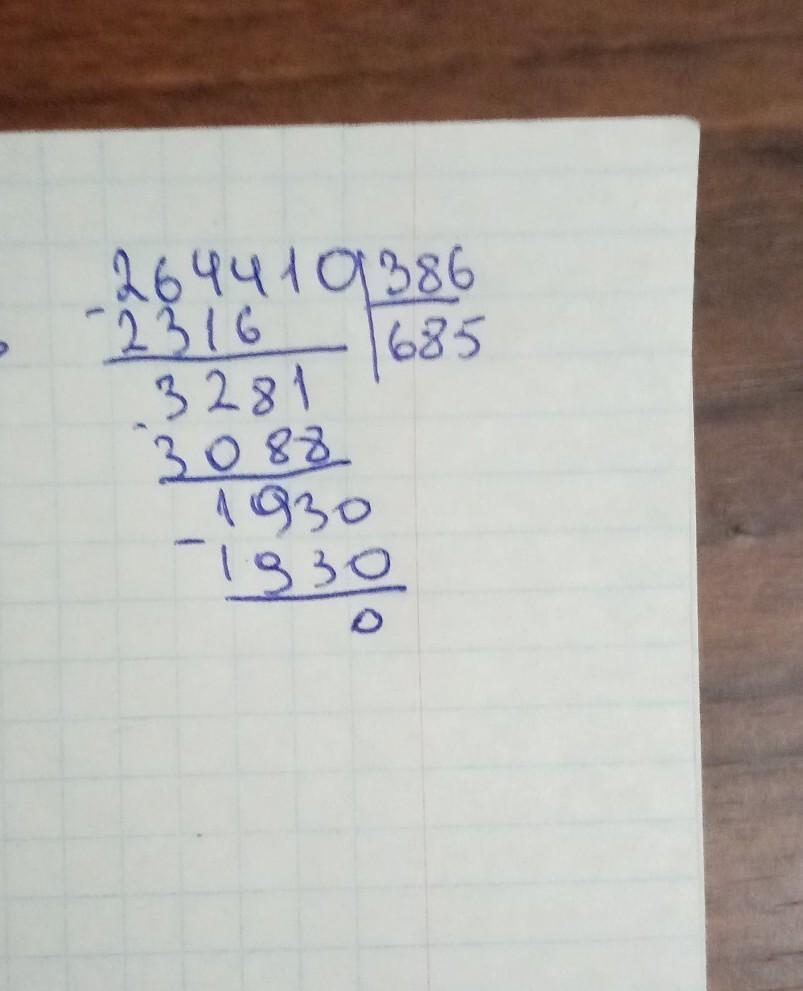 264410 386
- 2316 685
3281
- 3088
1930
- 1930
0